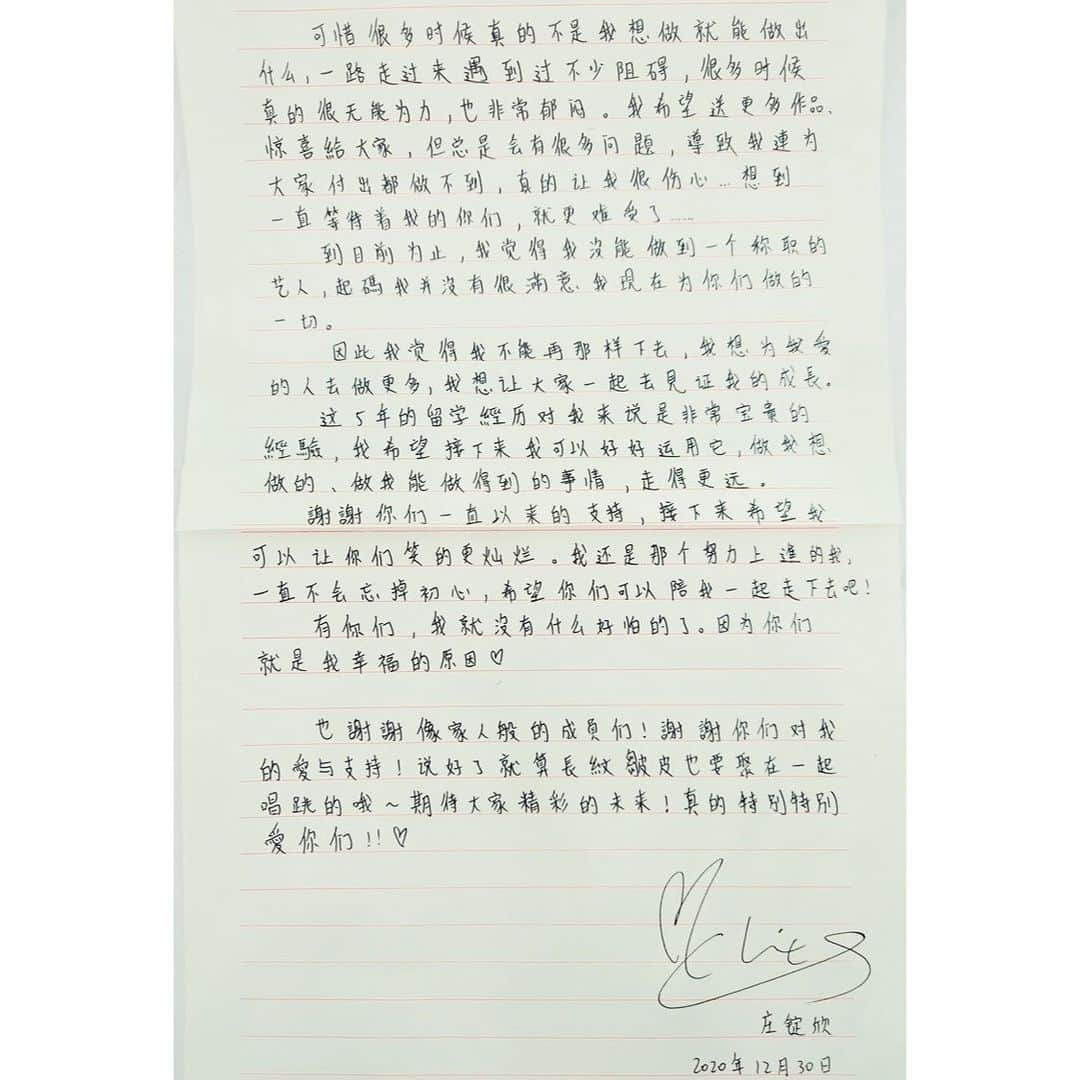 可惜很多时候真的不是我想做就能做出
什么,一路走过来遇到过不少阻碍,很多时候
真的很无能为力,也非常郁闷。我希望送更多作品、
惊喜給大家,但总是会有很多问題,導致我連为
大家付出都做不到,真的让我很伤心...想到
一直等待着我的你们,就更难受了......
到目前为止,我觉得我沒能做到一个称职的
艺人,起碼我并沒有很滿意我現在为你们做的
一切。
因此我觉得我不能再那样下去,我想为我爱
的人去做更多,我想让大家一起去見证我的成長。
这5年的留学經历对我来说是非常宝貴的
經驗,我希望接下来我可以好好运用它,做我想
做的、做我能做得到的事情,走得更远。
謝謝你们一直以来的支持,接下来希望我
可以让你们笑的更灿烂。我还是那个努力上進的我,
一直不会忘掉初心,希望你们可以陪我一起走下去吧!
有你们,我就沒有什么好怕的了。因为你们
就是我幸福的原因♡
也謝謝像家人般的成員们!謝謝你们对我
的愛与支持!说好了就算長紋皺皮也要聚在一起
唱跳的哦~期待大家精彩的未来!真的特别特别
愛你们!!♡
庄錠欣
2020年12月30日